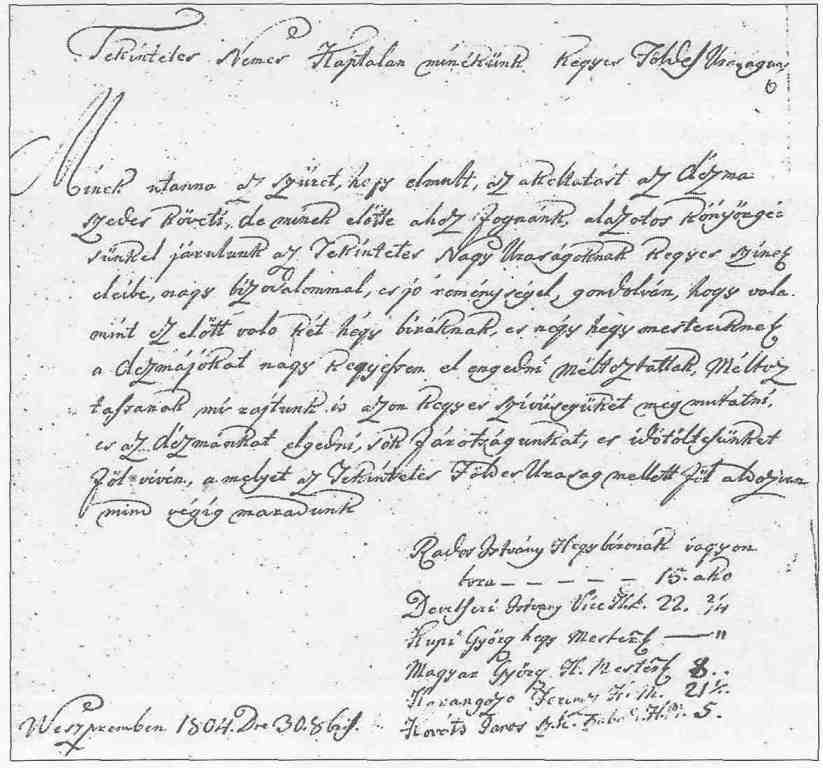 Tekintetes Nemes Káptalan minékünk Kegyes Földes Uraságunk
Minek utanna az szüret, hegy elmult, az akoltatást az dézma
szedes követi, de minek előtte ahoz fognánk, alazotos könyörgé-
sünkel járulunk az Tekintetes Nagy Uraságoknak kegyes szinek
eleibe, nagy bizodalommal, es jo reménységel, gondolván, hogy vala-
mint ez előtt valo két hégy biráknak, es négy hegy mestereknek
a dezmájókat nagy kegyessen el engedni méltoztattak, Méltoz
tassanak mi rajtunk is azon kegyes szivüségüket meg mutatni,
es az dézmánkat elgedni, sok fárotságunkat, es idötöltesünket
föl vévén, a melyet az Tekintetes Földes Uraság mellett föl aldozván
mind végig maradunk
Rados Istvány Hegybironak vagyon
bora – – – – – 15. ako
Istvány Vice 22. 2/4
Kupi Györg hegy Mesterk — "
Magyar Györg H. Mesterk 8.
Harangozo Ferencz H. M. 21½.
Kováts Janos H. M. 5.
Weszpremben 1804. Die 30. 8bris.